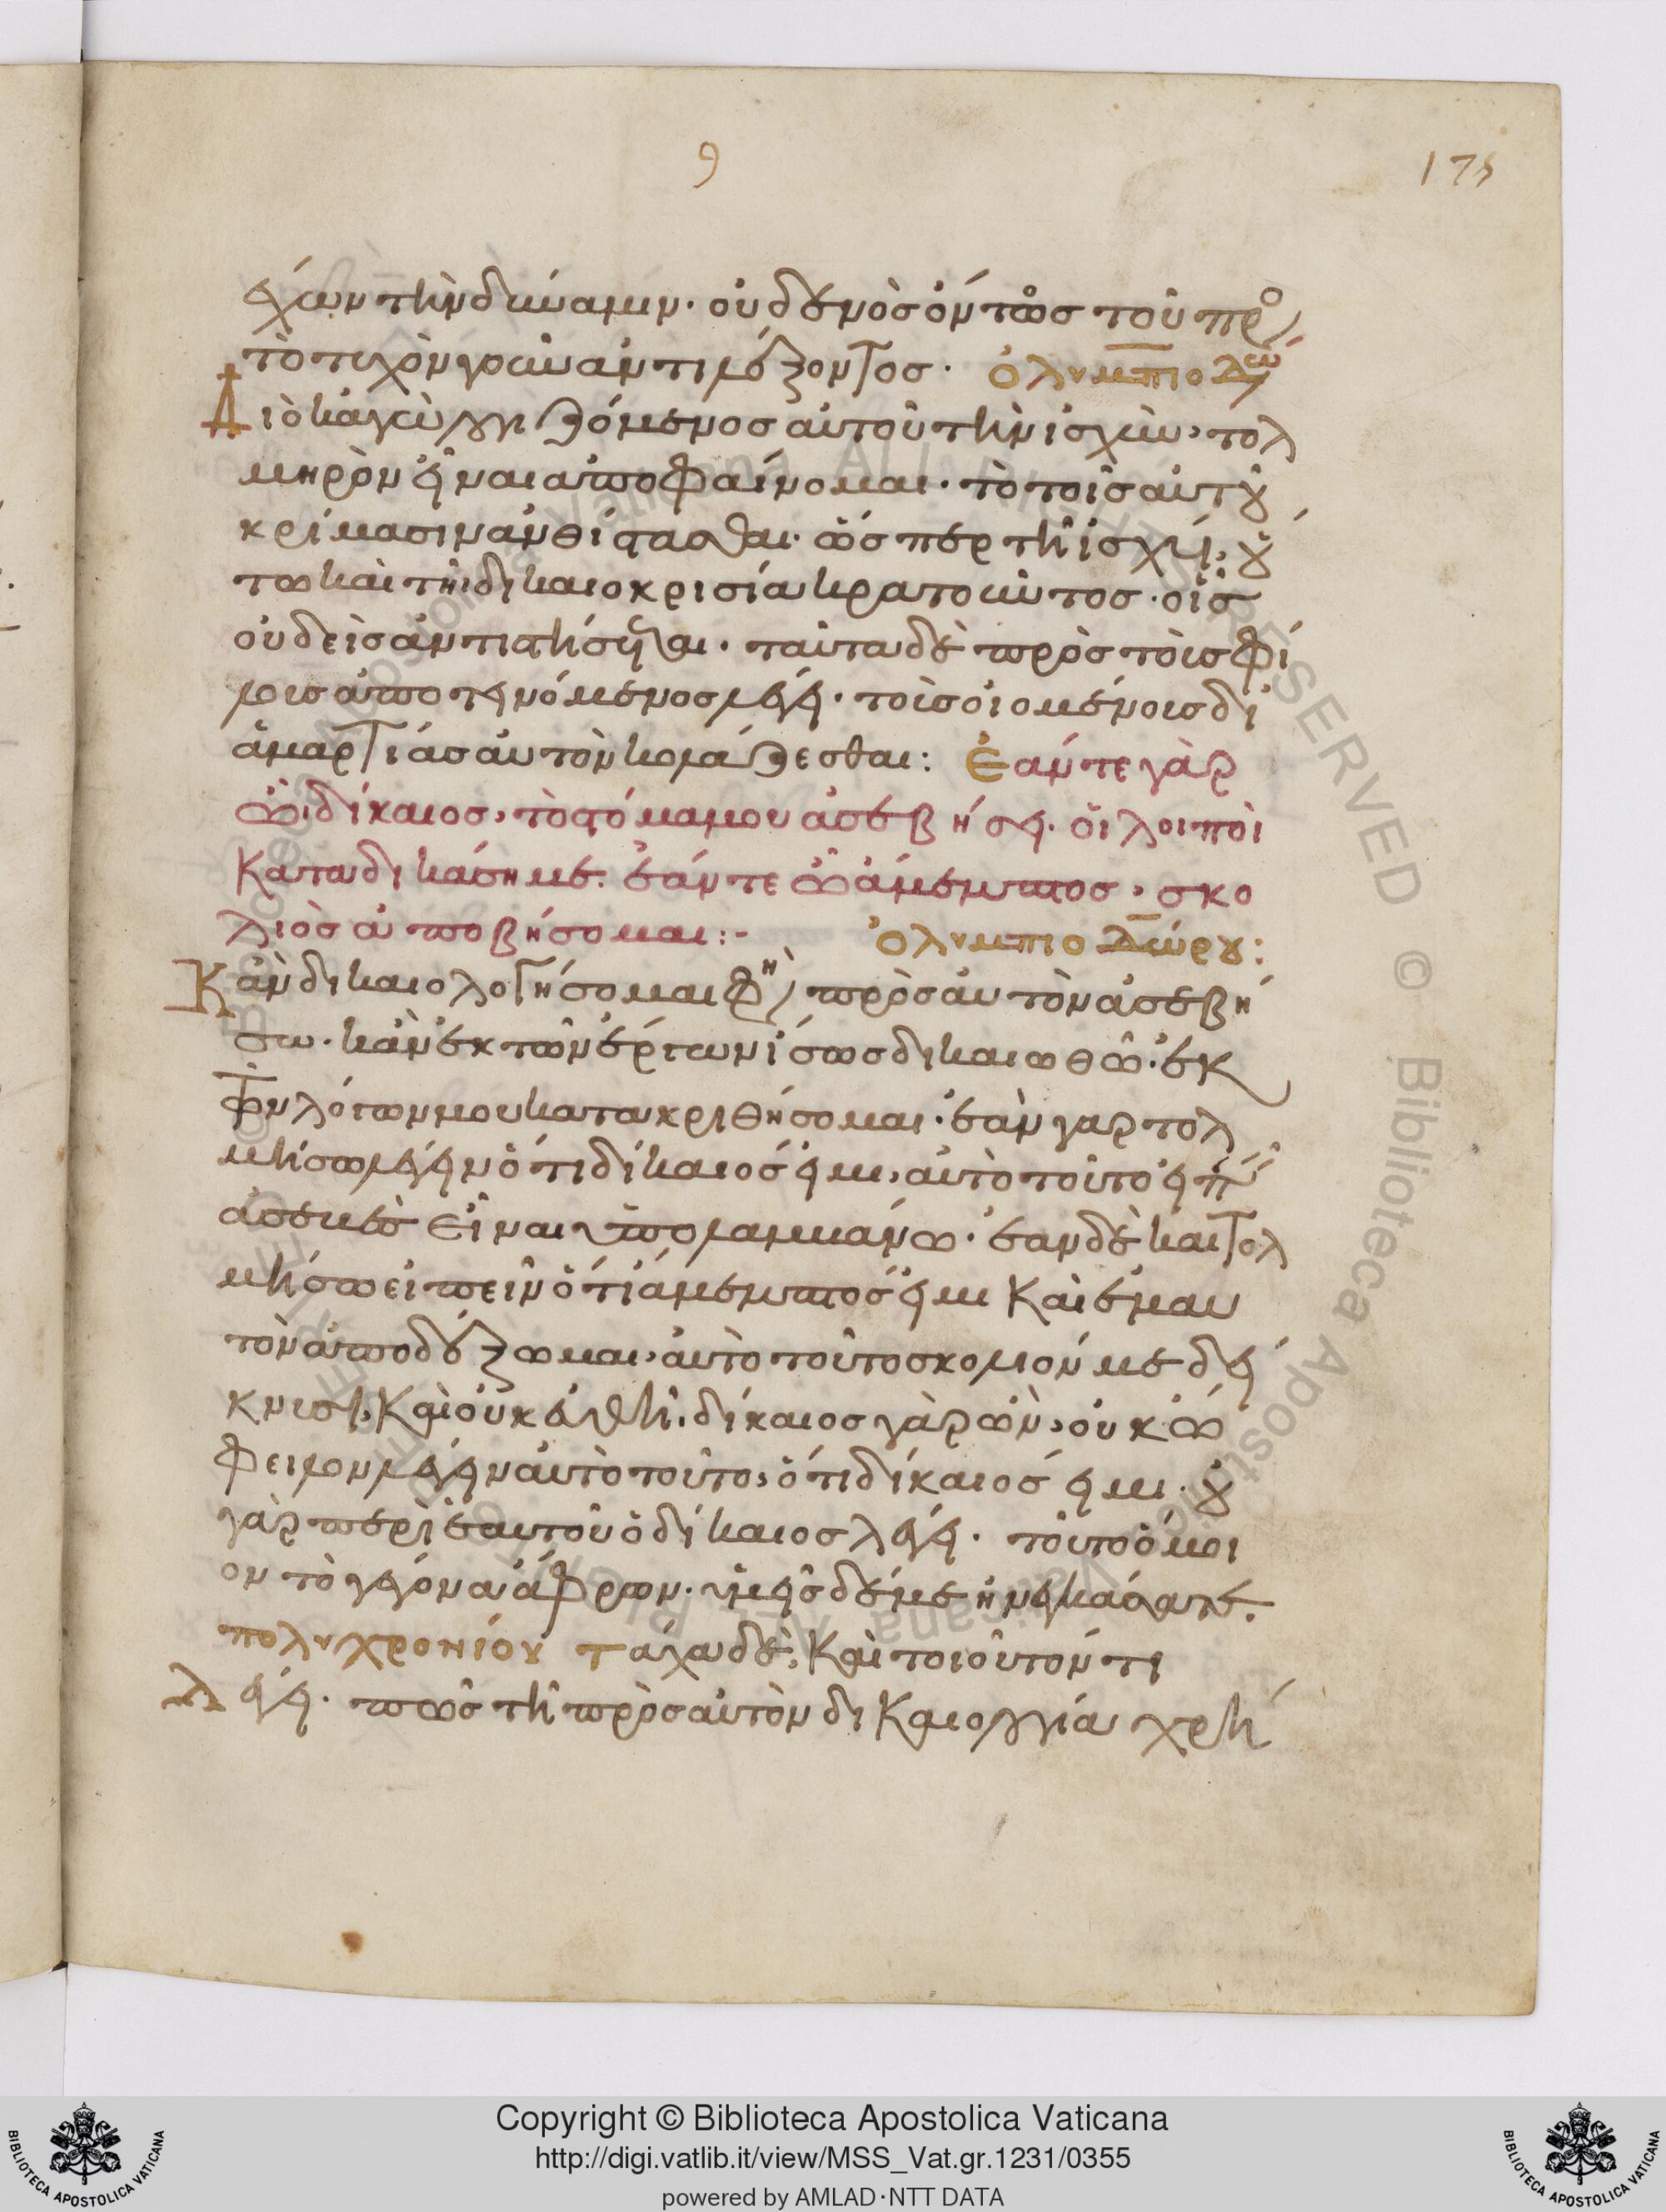 9
175
έχων τὴν δύναμιν· οὐδενὸς ὄντως τοῦ πρ(ὸς)
τὸ τυχὸν γοῦν ἀντιλέξοντος· ὀλυμπιοδώ
Διὸ κἀγὼ λογιζόμενος αὐτοῦ τὴν ἰσχὺν, τολ
μηρὸν εἶναι ἀποφαίνομαι· τὸ τοῖς αὐτοῦ
κρίμασιν ἀνθίστασθαι· ὥσπερ τῆ ἰσχύϊ, οὕ
τω καὶ τῆ δικαιοκρισία κρατοῦντος· οἷς
οὐδεὶς ἀντιστήσεται· ταῦτα δὲ πρὸς τοὺς φί
λους ἀποτεινόμενος λέγει· τοῖς οἰομένοις δι
ἁμαρτίας αὐτὸν κολάζεσθαι: Ἐάν τε γὰρ
ὦ δίκαιος, τὸ στόμα μου ἀσεβήσει· οἱ λοιποὶ
Καταδικάσιμε· ἐάν τε ὦ ἄμεμπτος, σκο
λιὸς ἀποβήσομαι:- Ὀλυμπιοδώρου:
Κἂν δικαιολογήσομαι φη(σὶ) πρὸς αὐτὸν ἀσεβή
σω· κἂν ἐκ τῶν ἔργων ἴσως δικαιωθῶ· ἐκ
τῶν λόγων μου κατακριθήσομαι· ἐὰν γαρ τολ
μήσω λέγειν ὅτι δίκαιός εἰμι, αὐτὸ τοῦτο εἰπεῖν
ἀσεβὲς εἶναι ὑπολαμβάνω· ἐὰν δὲ καὶ τολ
μήσω εἰπεῖν ὅτι ἄμεμπτός εἰμι Καὶ ἐμαυ
τὸν ἀποδέξωμαι, αὐτὸ τοῦτο σκολιόν με δεί
κνυσι, Καὶ οὐκ εὐθῆ· δίκαιος γὰρ ὢν, οὐκ ὤ
φειλον λέγειν αὐτὸ τοῦτο, ὅτι δίκαιός εἰμι· οὐ
γὰρ περὶ ἑαυτοῦ ὁ δίκαιος λέγει· τοῦτο ὅμοι
ον τὸ γέγονα ἄφρων· ὑμεῖς δέ με ἠναγκάσατε·
πολυχρονίου Τάχα δὲ, Καὶ τοιοῦτόν τι
λέγει· πῶς τῆ πρὸς αὐτὸν δικαιολογία χρή
Copyright © Biblioteca Apostolica Vaticana
http://digi.vatlib.it/view/MSS_Vat.gr.1231/0355
powered by AMLAD·NTT DATA